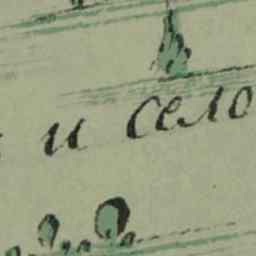 и село